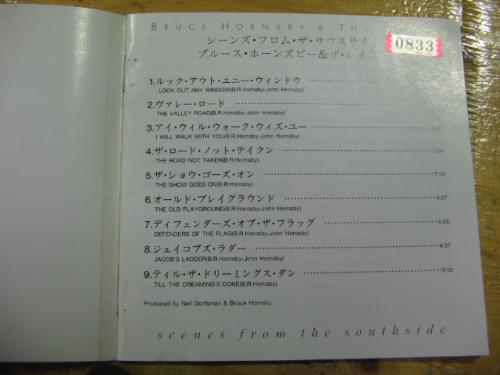 BRUCE HORNSBY & TH
シーンズ・フロム・ザ・サウスサイ
0833
ブルース・ホーンズビー&ザ・レイ
1.ルック・アウト・エニー・ウィンドウ
LOOK OUT ANY WINDOW(B.R.Hornsby-John Hornsby)
2.ヴァレー・ロード
THE VALLEY ROAD(B.R.Hornsby-John Hornsby)
3.アイ・ウィル・ウォーク・ウィズ・ユー
I WILL WALK WITH YOU(B.R.Hornsby-John Hornsby)
4.ザ・ロード・ノット・テイクン
THE ROAD NOT TAKEN(B.R.Hornsby)
5.ザ・ショウ・ゴーズ・オン
THE SHOW GOES ON(B.R.Hornsby)
6.オールド・プレイグラウンド 4:27
THE OLD PLAYGROUND(B.R.Hornsby-John Hornsby)
7.ディフェンダーズ・オブ・ザ・フラッグ
DEFENDERS OF THE FLAG(B.R.Hornsby-John Hornsby)
8.ジェイコブズ・ラダー 4:37
JACOB'S LADDER(B.R.Hornsby-John Hornsby)
9.ティル・ザ・ドリーミングス・ダン
TILL THE DREAMING'S DONE(B.R.Hornsby)
Produced by Neil Dorfsman & Bruce Hornsby
scenes from the southside